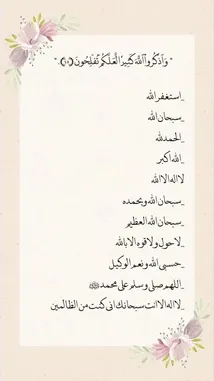 " وَاذْكُرُوا اللَّهَ كَثِيرًا لَّعَلَّكُمْ تُفْلِحُونَ (١٠) ."
_استغفر الله
_سبحان الله
_الحمدلله
_الله اكبر
لا اله الا الله
_سبحان الله وبحمده
_سبحان الله العظيم
_لاحول ولا قوه الا بالله
_حسبي الله ونعم الوكيل
_اللهم صلي وسلم على محمد ﷺ
_لا اله الا انت سبحانك اني كنت من الظالمين